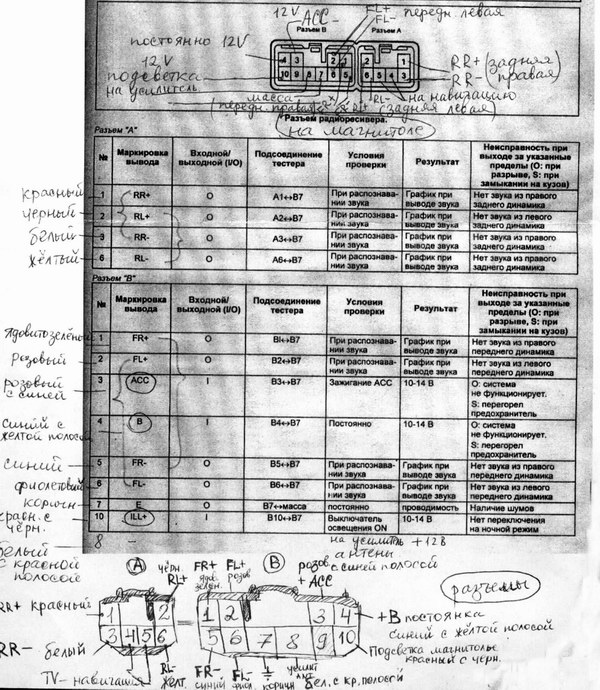 12V ACC - FL+ FL- передн. левая
Разъем B Разъем A
постоянно 12V
12V
подсветка
на усилитель
RR+ (задняя
RR- правая)
на навигацию
масса
(передн. правая) RL+ RL- (задняя левая)
*Разъем радиоресивера.
на магнитоле
Разъем "А"
№ Маркировка вывода Входной/выходной (I/O) Подсоединение тестера Условия проверки Результат Неисправность при выходе за указанные пределы (О: при разрыве, S: при замыкании на кузов)
красный 1 RR+ O A1↔B7 При распознавании звука График при выводе звука Нет звука из правого заднего динамика
чёрный 2 RL+ O A2↔B7 При распознавании звука График при выводе звука Нет звука из левого заднего динамика
белый 3 RR- O A3↔B7 При распознавании звука График при выводе звука Нет звука из правого заднего динамика
жёлтый 6 RL- O A6↔B7 При распознавании звука График при выводе звука Нет звука из левого заднего динамика
Разъем "В"
№ Маркировка вывода Входной/выходной (I/O) Подсоединение тестера Условия проверки Результат Неисправность при выходе за указанные пределы (О: при разрыве, S: при замыкании на кузов)
ядовитозелёный 1 FR+ O BI↔B7 При распознавании звука График при выводе звука Нет звука из правого переднего динамика
розовый 2 FL+ O B2↔B7 При распознавании звука График при выводе звука Нет звука из левого переднего динамика
розовый с синей 3 ACC I B3↔B7 Зажигание ACC 10-14 В О: система не функционирует. S: перегорел предохранитель
синий с жёлтой полосой 4 B I B4↔B7 Постоянно 10-14 В О: система не функционирует. S: перегорел предохранитель
синий 5 FR- O B5↔B7 При распознавании звука График при выводе звука Нет звука из правого переднего динамика
фиолетовый 6 FL- O B6↔B7 При распознавании звука График при выводе звука Нет звука из левого переднего динамика
коричн 7 E O B7↔масса постоянно проводимость Наличие шумов
красн. с чёрн. 10 ILL+ I B10↔B7 Выключатель освещения ON 10-14 В Нет переключения на ночной режим
8 - на усилитель +12В
белый с красной полосой антены
А чёрн. RL+ FR+ ядов. зелен. FL+ розов B розов с синей полосой + ACC
разъемы
RR+ красный 1 2 = 1 2 3 4 +B постоянка
синий с жёлтой полосой
RR- белый 3 4 5 6 5 6 7 8 9 10 Подсветка магнитолы
красный с черн.
TV-навигация RL- желт. FR- синий FL- фиол. коричн усилит ант. бел. с кр. полосой